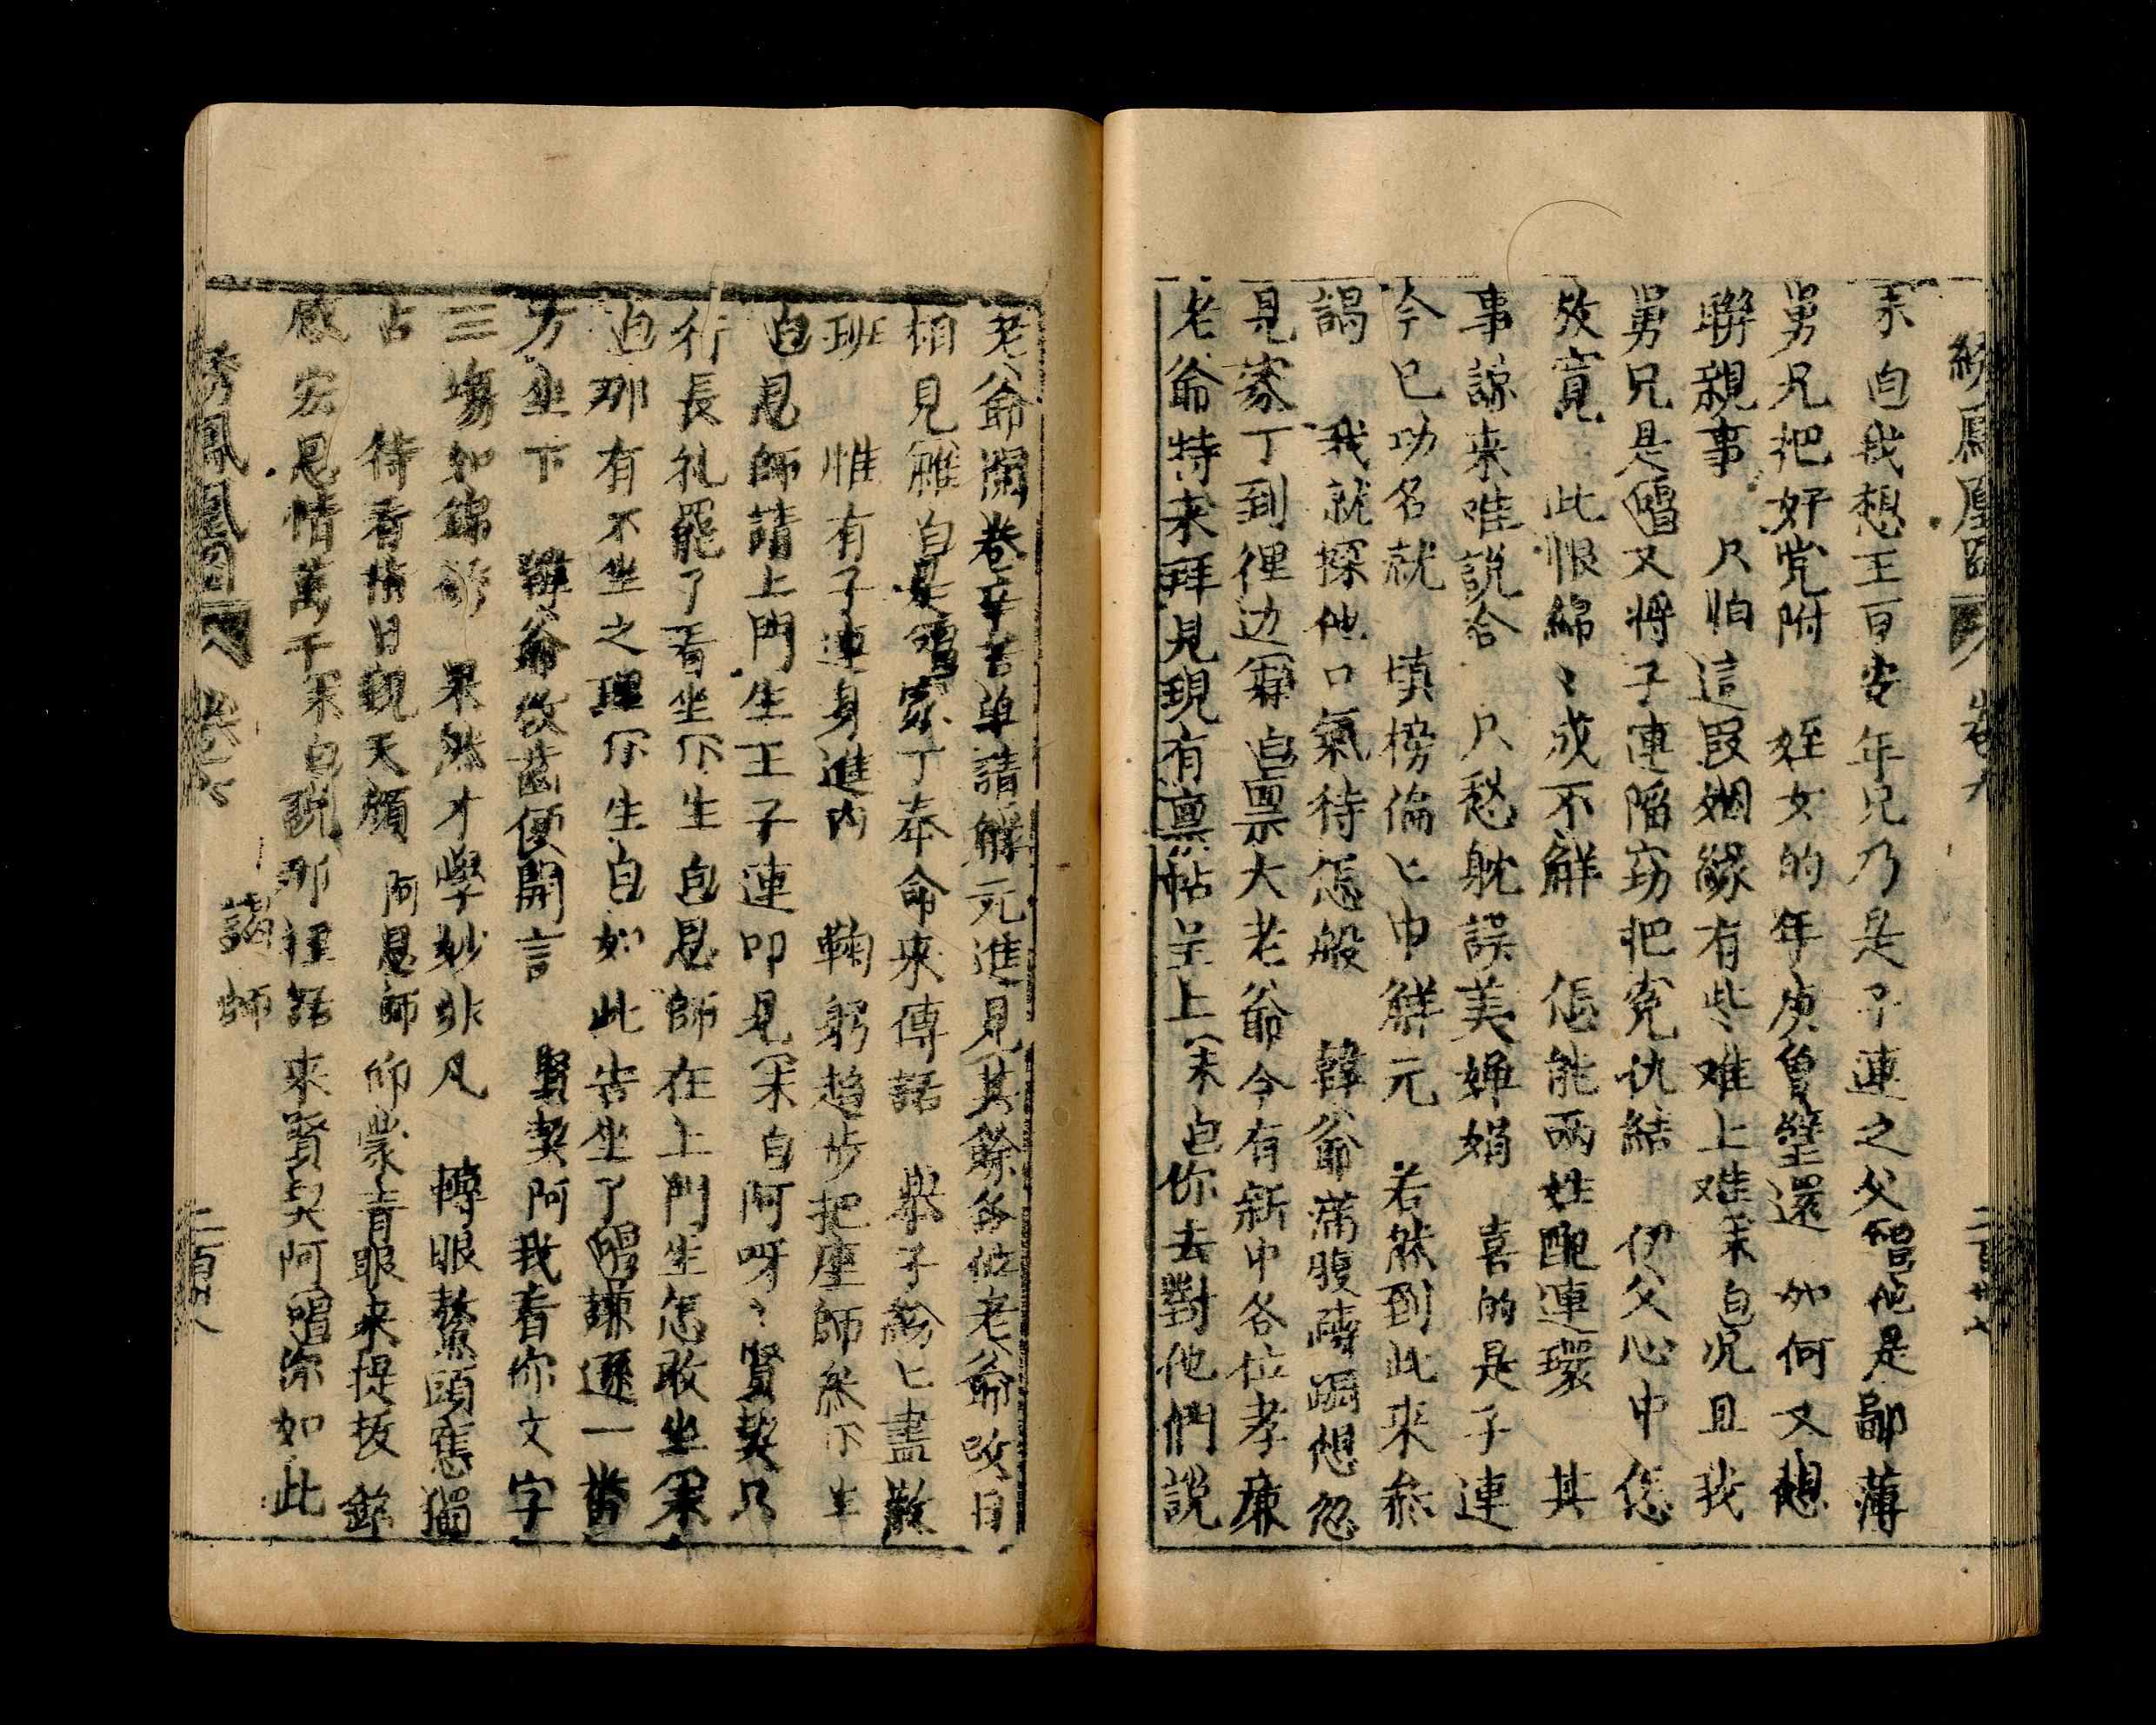 綉鳳凰圖 卷六 二百廿七
末白我想王百安年兄乃是子連之父唱他是鄙薄
舅兄把好党附 姪女的年庚曾璧還 如何又想
聯親事 只怕這叚姻緣有些难上难末白况且我
舅兄是唱又將子連陷窃把寃仇結 伊父心中恁
放寬 此恨綿〻或不觧 恁能両姓配連環 其
事諒来唯説合 只愁躭誤美婵娟 喜的是子連
今已功名就 填榜倫匕中觧元 若然到此来叅
謁 我就探他口氣待怎般 韓爺滿腹躊蹰想忽
見家丁到裡边 白禀大老爺今有新中各位孝廉
老爺特来拜見現有禀帖呈上末白你去對他們說
老爺闈卷辛苦单請觧元進見其餘各位老爺改日
相見雜白是唱家丁奉命来傳話 举子紛匕盡散
班 惟有子連身進内 鞠躬趋步把座師叅小生
白恩師請上門生王子連叩見末白阿呀〻賢契只
行長礼罷了看坐小生白恩師在上門生怎敢坐末
白那有不坐之理小生白如此告坐了唱謙遜一番
方坐下 韓爺啟齒便開言 賢契阿我看你文字
三塲如錦綉 果然才學妙非凡 轉眼鰲頭應獨
占 待看指日觀天顔 阿恩師仰蒙青眼来提拔 銘
感宏恩情萬千末白說那裡話来賢契阿唱你如此
綉鳳凰圖 卷六 謁師 二百廿八